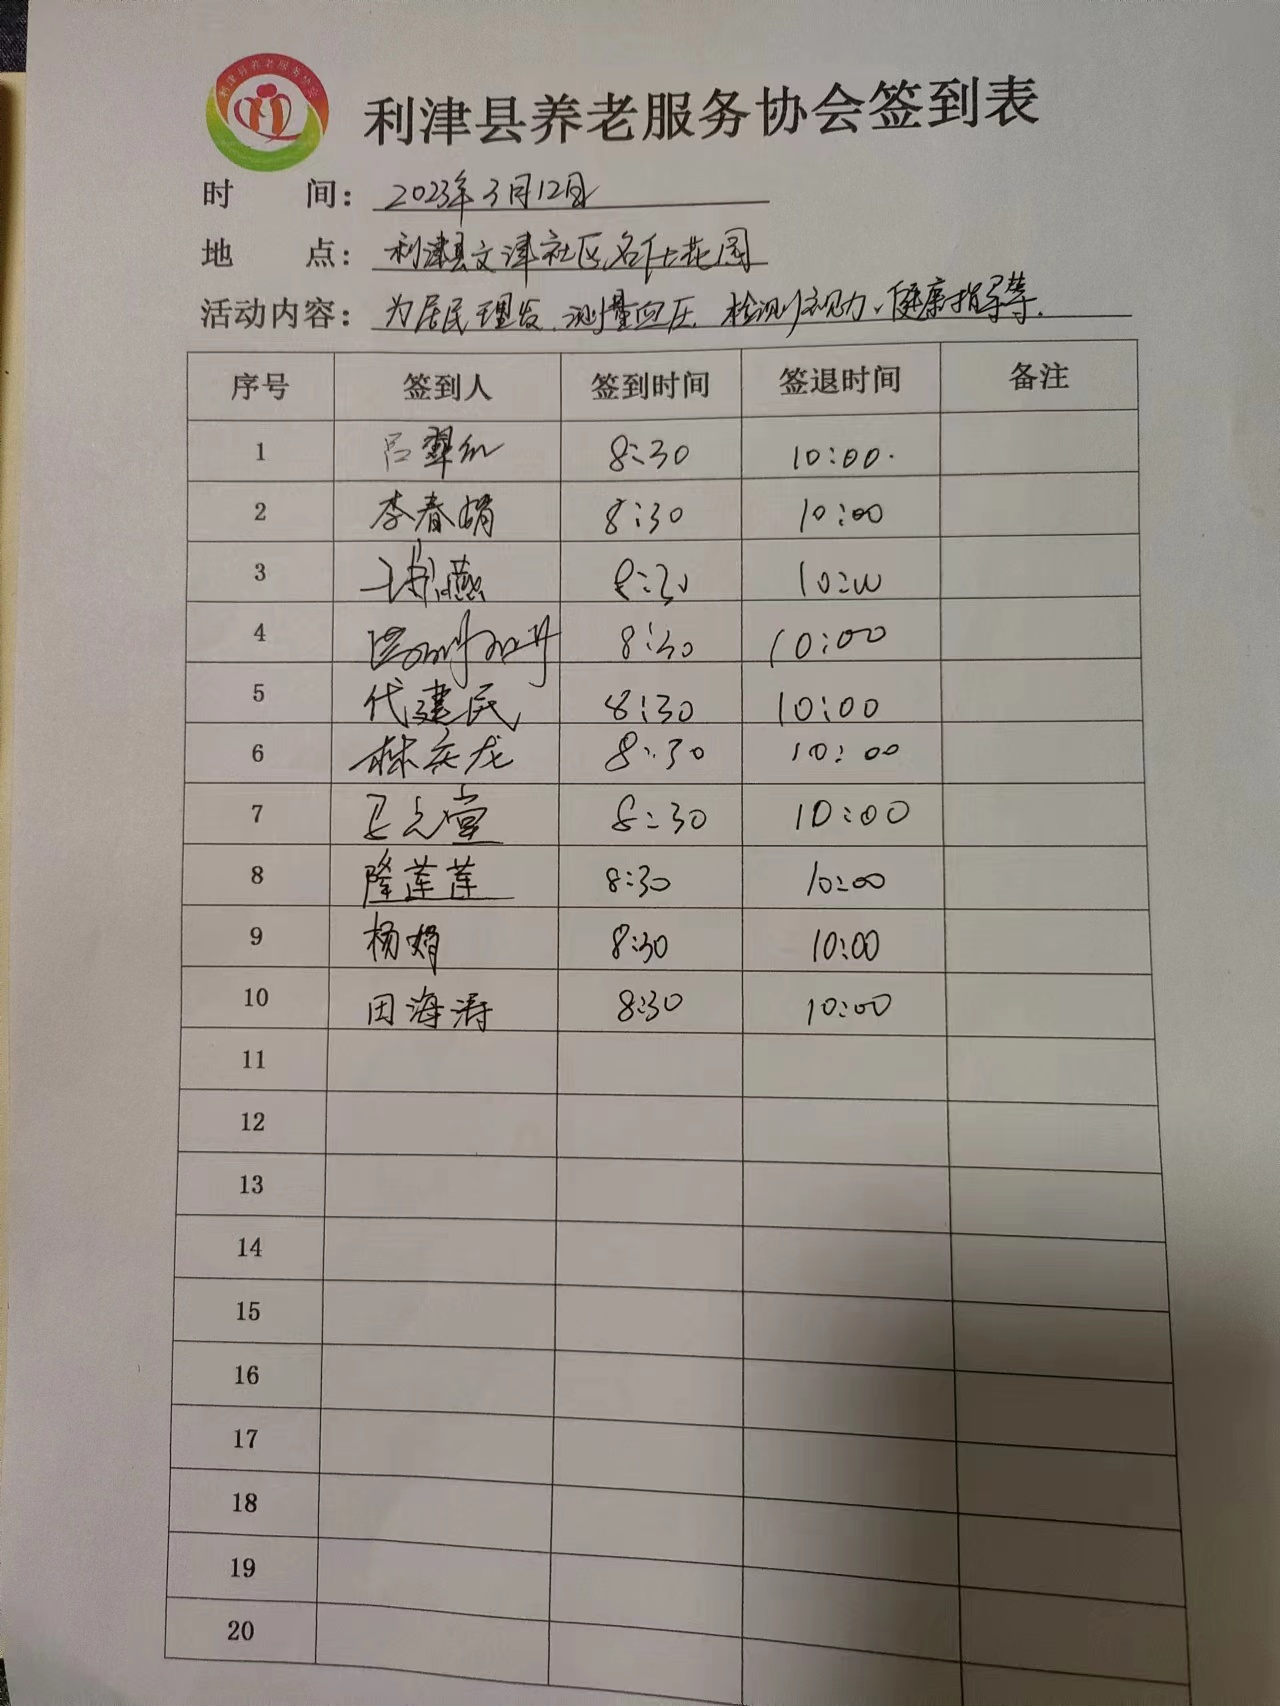 利津县养老服务协会
利津县养老服务协会签到表
时 间: 2023年3月12日
地 点: 利津县文津社区名仕花园
活动内容: 为居民理发、测量血压、检测视力、健康指导等.
序号 签到人 签到时间 签退时间 备注
1 吕翠红 8:30 10:00.
2 李春娟 8:30 10:00
3 燕 8:30 10:00
4 8:30 10:00
5 代建民 8:30 10:00
6 林庆龙 8:30 10:00
7 堂 8:30 10:00
8 隆莲莲 8:30 10:00
9 杨娟 8:30 10:00
10 田海涛 8:30 10:00
11
12
13
14
15
16
17
18
19
20